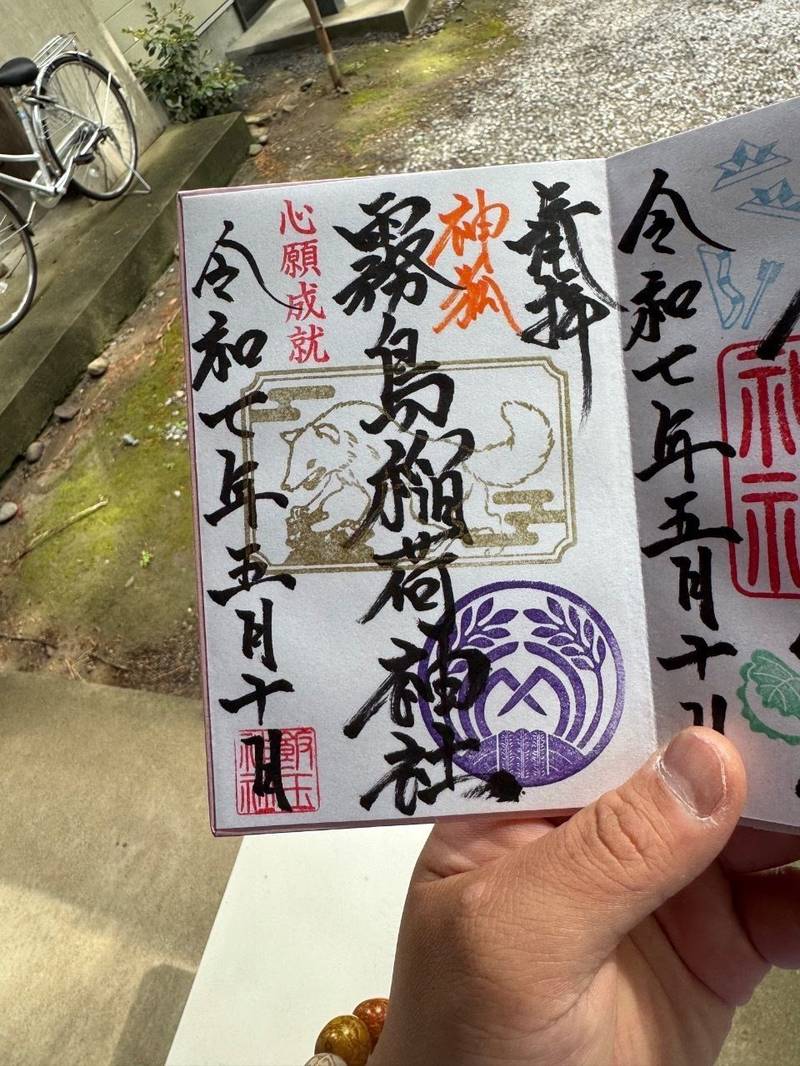 奉拝
神狐
霧島稲荷神社
心願成就
令和七年五月十日
飯玉
神社
令和七年五月十日
神社